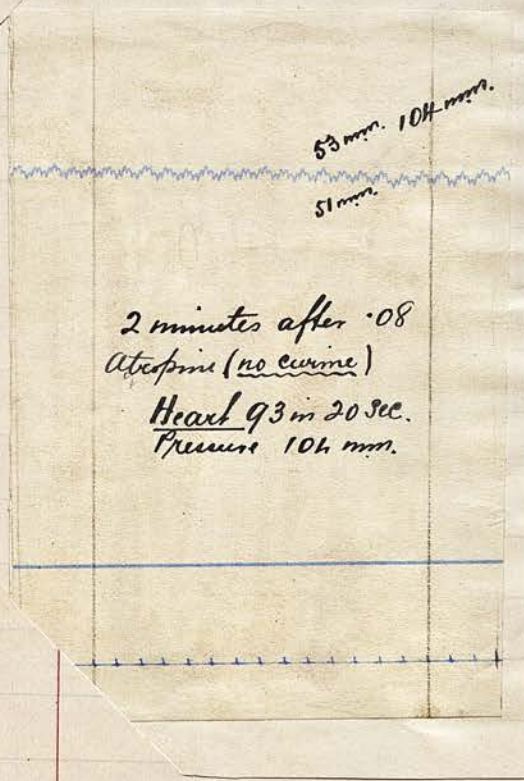 53 mm. 104 mm.
51 mm.
2 minutes after ·08
Atropine (no curine)
Heart 93 in 20 sec.
Pressure 104 mm.